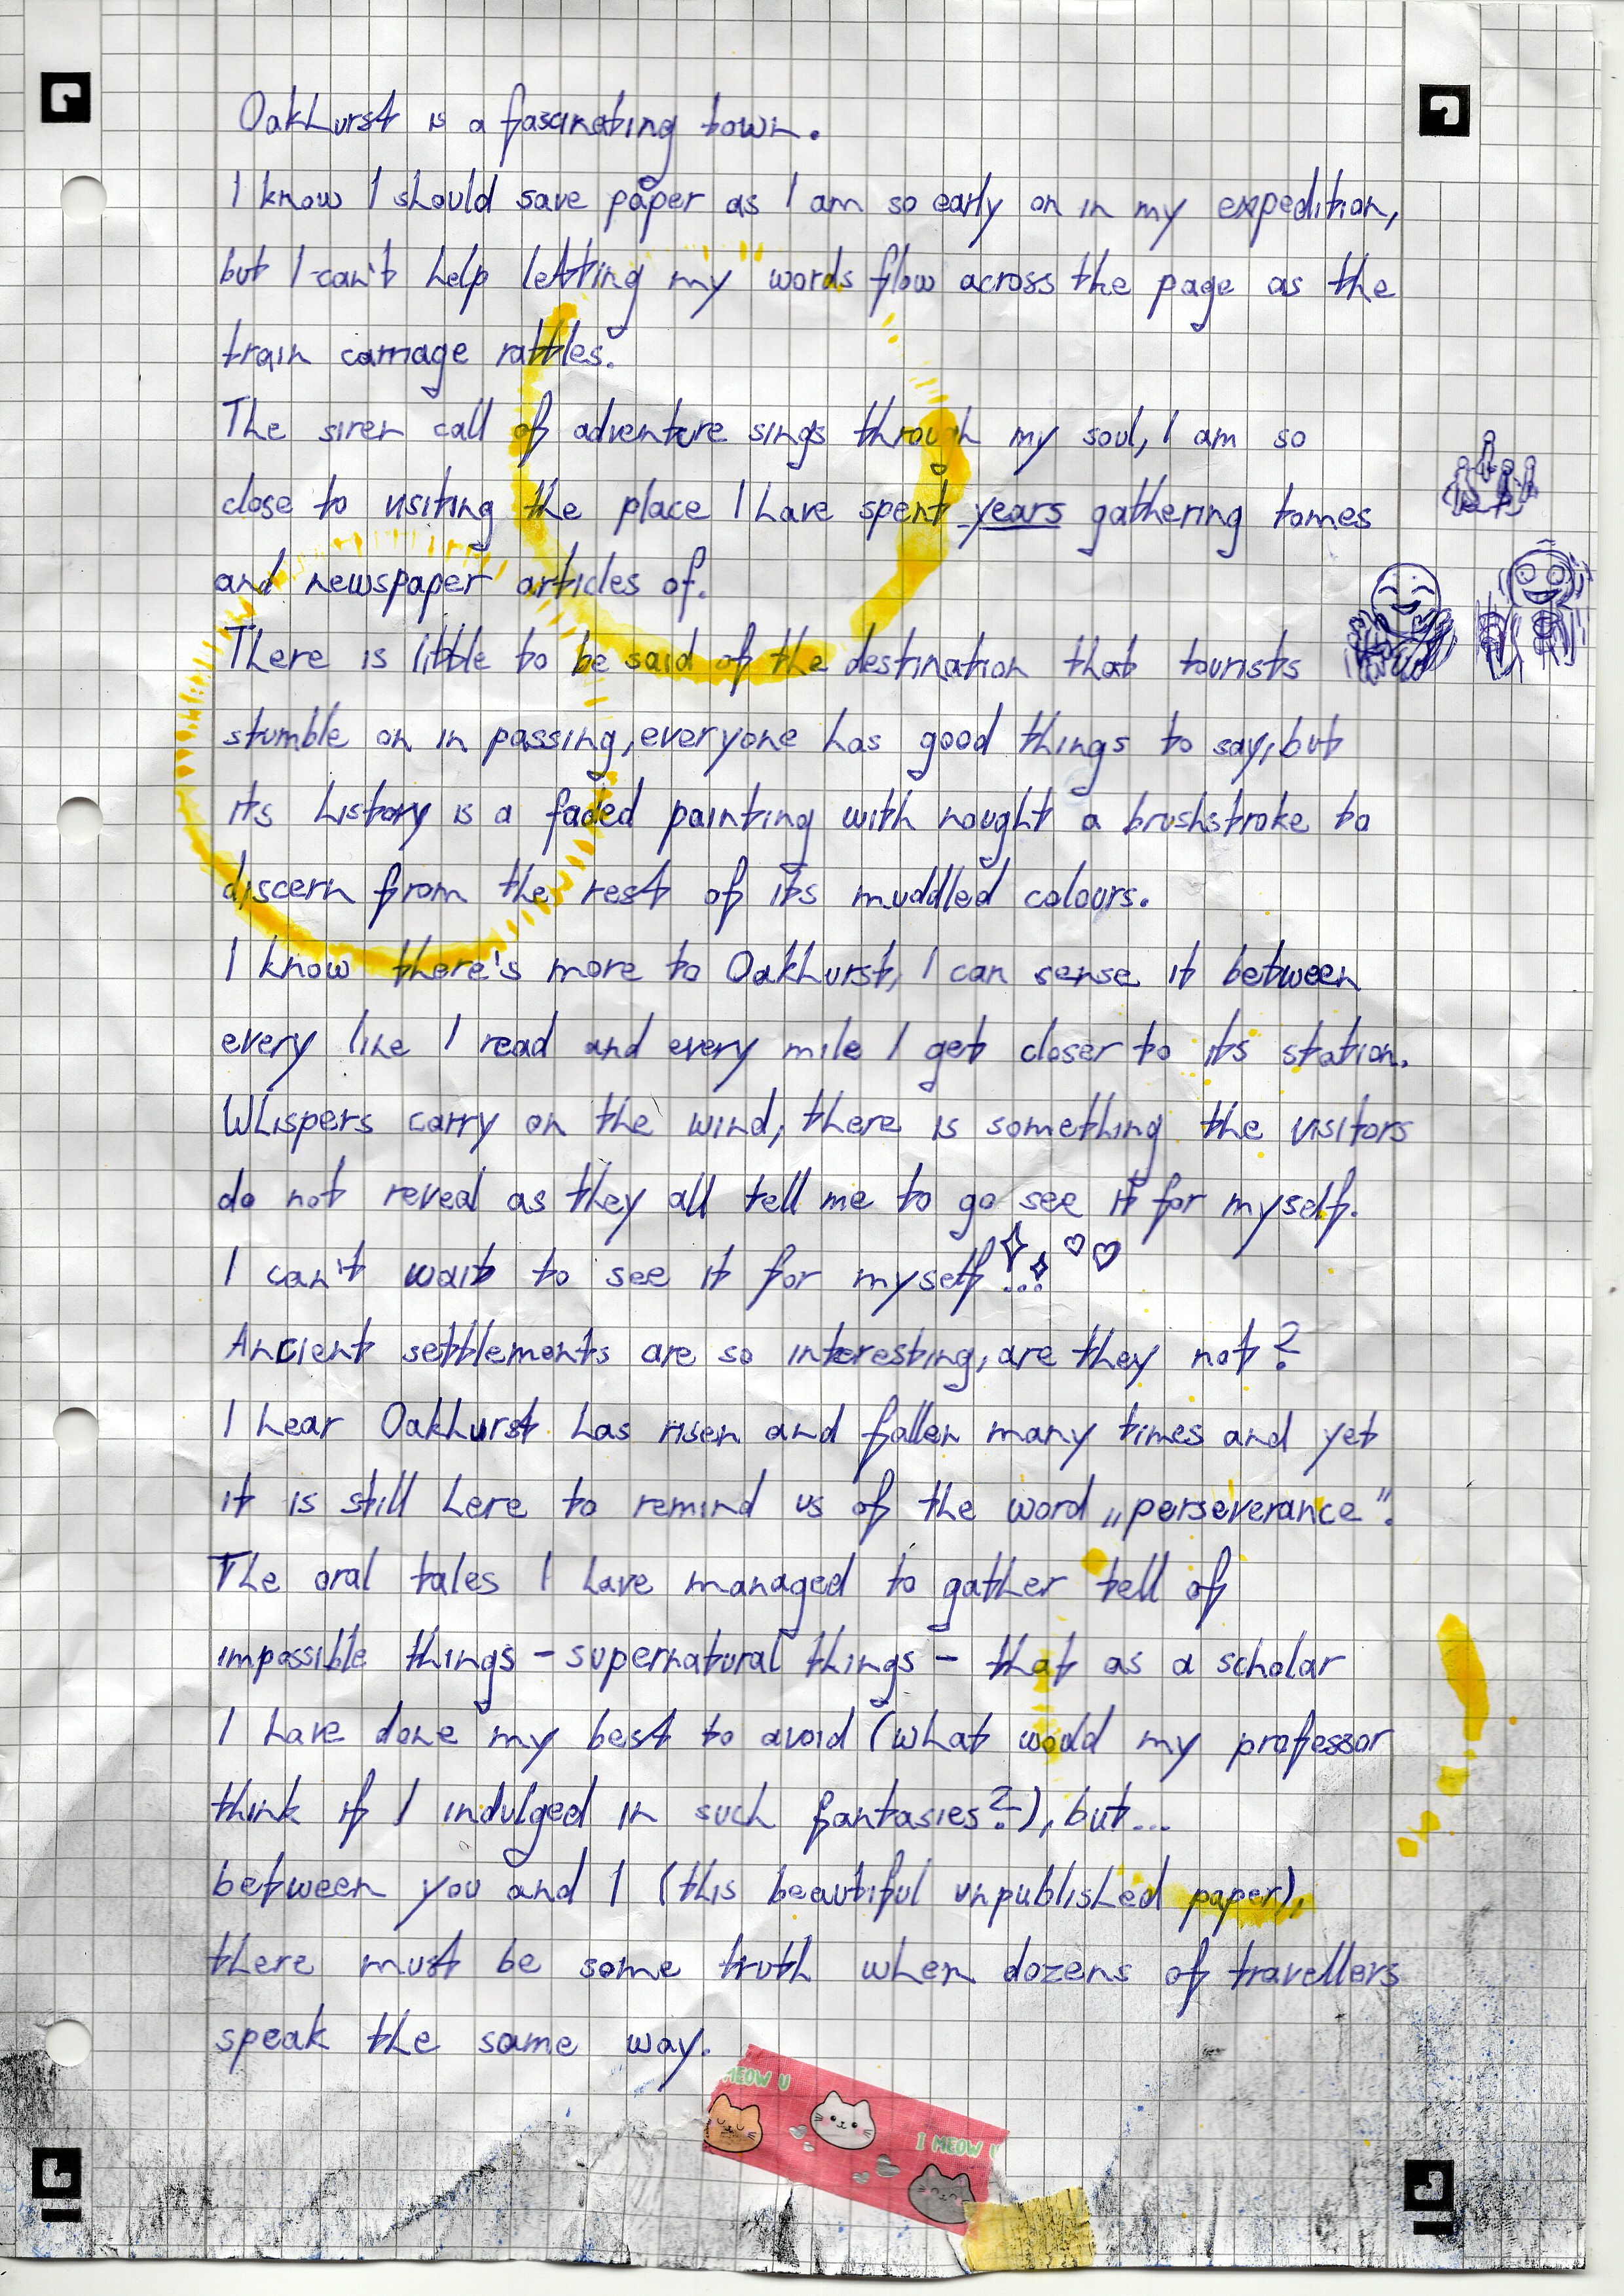 Oakhurst is a fascinating town.
I know I should save paper as I am so early on in my expedition,
but I can't help letting my words flow across the page as the
train carriage rattles.
The siren call of adventure sings through my soul, I am so
close to visiting the place I have spent years gathering tomes
and newspaper articles of.
There is little to be said of the destination that tourists
stumble on in passing, everyone has good things to say, but
its history is a faded painting with nought a brushstroke to
discern from the rest of its muddled colours.
I know there's more to Oakhurst, I can sense it between
every line I read and every mile I get closer to its station.
Whispers carry on the wind, there is something the visitors
do not reveal as they all tell me to go see it for myself.
I can't wait to see it for myself...
Ancient settlements are so interesting, are they not?
I hear Oakhurst has risen and fallen many times and yet
it is still here to remind us of the word „perseverance".
The oral tales I have managed to gather tell of
impossible things - supernatural things - that as a scholar
I have done my best to avoid (what would my professor
think if I indulged in such fantasies?), but...
between you and I (this beautiful unpublished paper),
there must be some truth when dozens of travellers
speak the same way.
MEOW U
I MEOW U